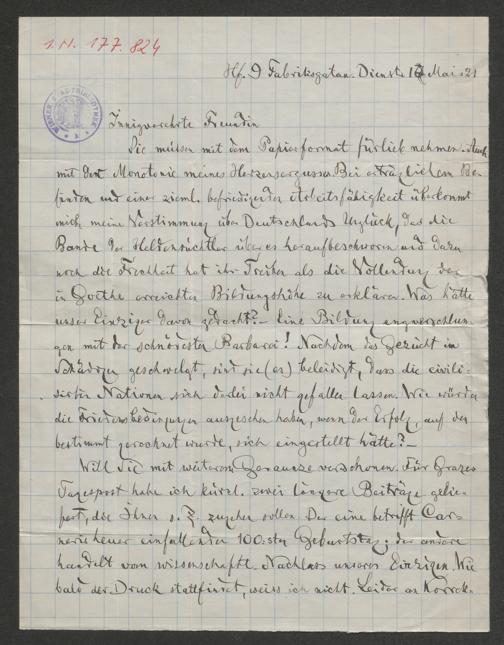 I.N. 177.824
WIENER STADTBIBLIOTHEK
Hf. 9 Fabriksgatan. Dienst. 17 Mai 21
Innigverehrte Freundin
Sie müssen mit dem Papierformat fürlieb nehmen. Auch
mit der Monotonie meines Herzensergusses. Bei erträglichem Be-
finden und einer zieml. befriedigenden Arbeitsfähigkeit überkommt
mich meine Verstimmung über Deutschlands Unglück, das die
Bande der Heldensüchtler über es heraufbeschworen und dazu
noch die Frechheit hat ihr Treiben als die Vollendung der
in Goethe erreichten Bildungshöhe zu erklären. Was hätte
unser Einziger davon gedacht? – Eine Bildung engverschlun-
gen mit der schnödesten Barbarei! Nachdem das Gezücht im
geschwelgt, sind sie (es) beleidigt, dass die civili-
sirten Nationen sich dabei nicht gefallen lassen. Wie würden
die Friedensbedingungen ausgesehen haben, wenn der Erfolg, auf den
bestimmt gerechnet wurde, sich eingestellt hätte? –
Will Sie mit weiterem Geraunze verschonen. Für Grazer
Tagespost habe ich kürzl. zwei längere Beiträge gelie-
fert, die Ihnen s. Z. zugehen sollen. Der eine betrifft Car-
neris heuer einfallenden 100:sten Geburtstag; der andere
handelt vom wissenschaftl. Nachlass unseres Einzigen. Wie
bald der Druck stattfindet, weiss ich nicht. Leider an Korrek-